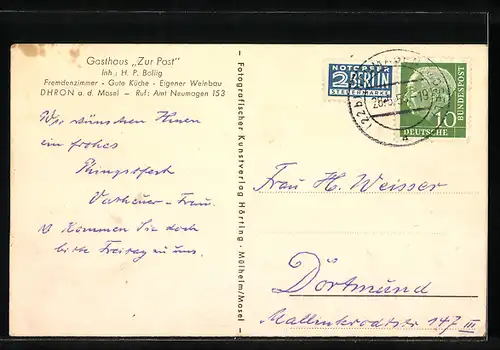 Gasthaus „Zur Post"
Inh.: H. P. Bollig
Fremdenzimmer - Gute Küche - Eigener Weinbau
DHRON a. d. Mosel — Ruf: Amt Neumagen 153
Wir wünschen Ihnen
ein frohes
Pfingstfest
u. Frau.
Kommen Sie doch
bitte Freitag zu uns.
— Fotografischer Kunstverlag Hörting - Mülheim/Mosel —
NOTOPFER
2 BERLIN
STEUERMARKE
DEUTSCHE
BUNDESPOST
10
Frau H. Weisser
Dortmund
Mallinkrodtstr 147 III